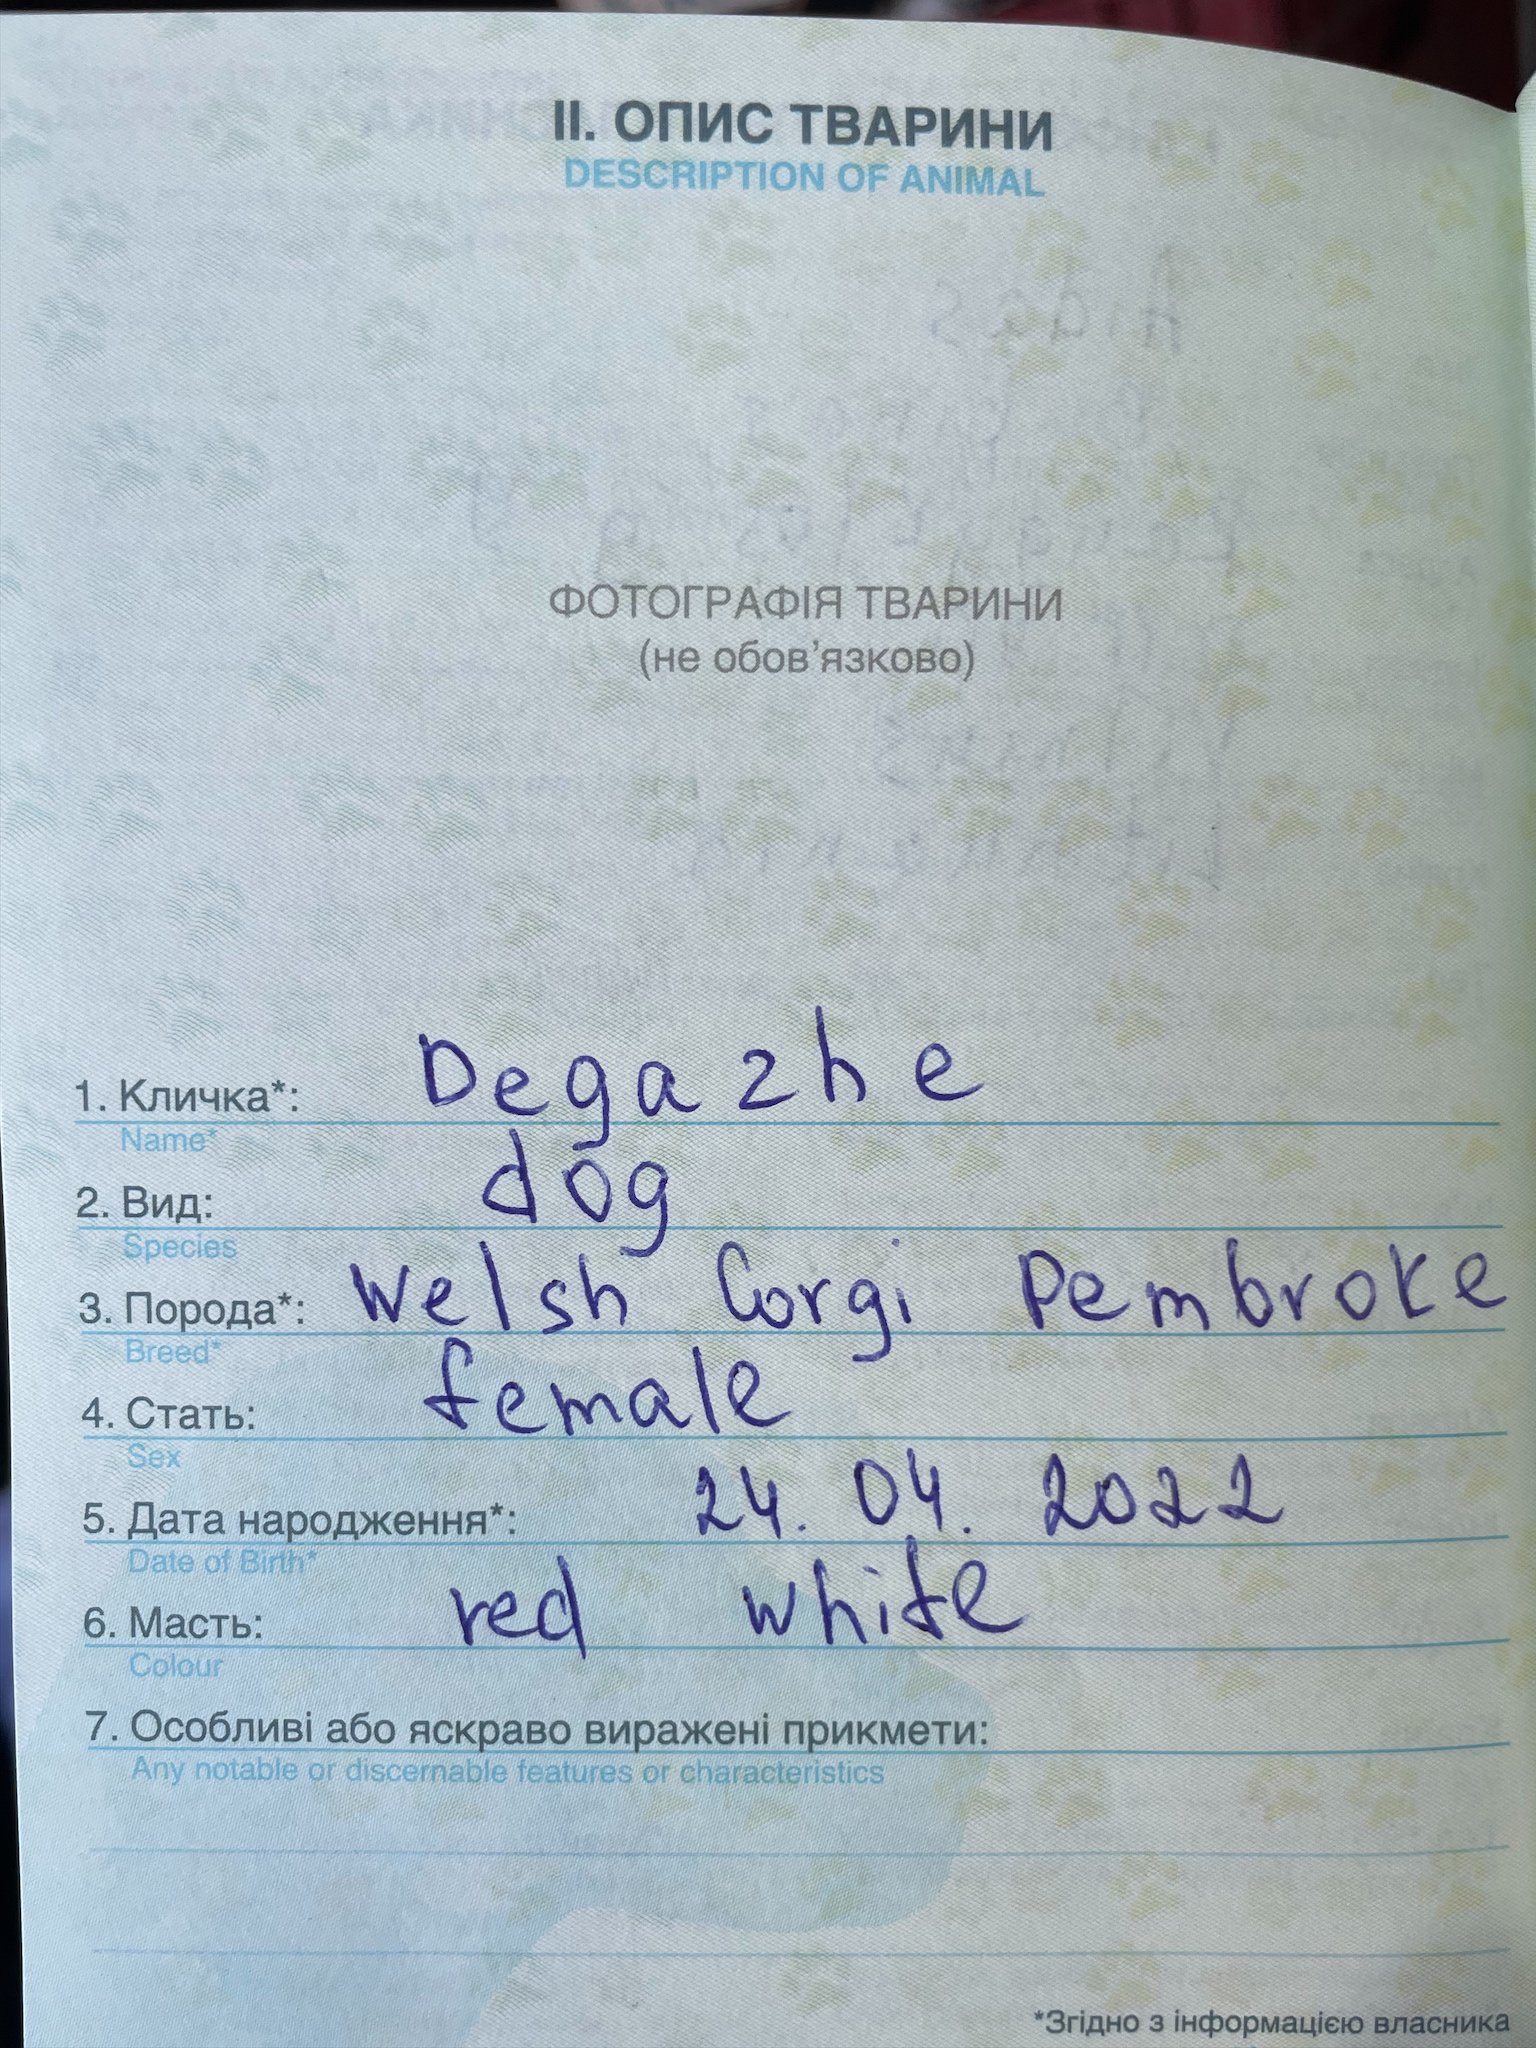 II. ОПИС ТВАРИНИ
DESCRIPTION OF ANIMAL
ФОТОГРАФІЯ ТВАРИНИ
(не обов’язково)
1. Кличка*: Degazhe
Name*
2. Вид: dog
Species
3. Порода*: Welsh Corgi Pembroke
Breed*
4. Стать: female
Sex
5. Дата народження*: 24. 04. 2022
Date of Birth*
6. Масть: red white
Colour
7. Особливі або яскраво виражені прикмети:
Any notable or discernable features or characteristics
*Згідно з інформацією власника